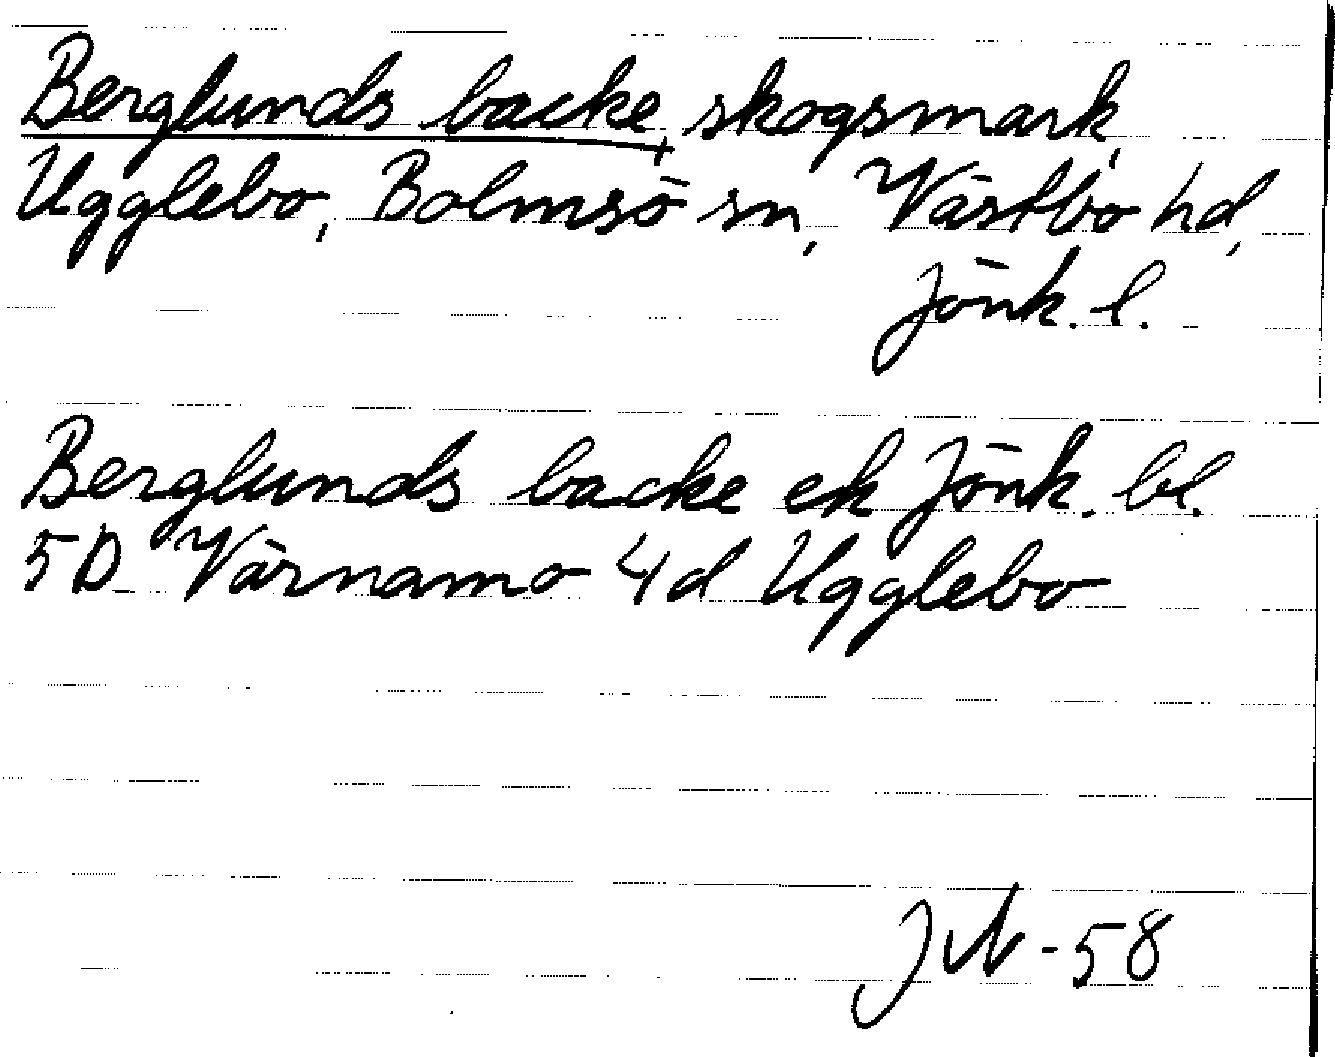 Berglunds backe, skogsmark,
Ugglebo, Bolmsö sn, Västbo hd,
Jönk. l.
Berglunds backe ek Jönk. bl.
5D Värnamo 4d Ugglebo
-58